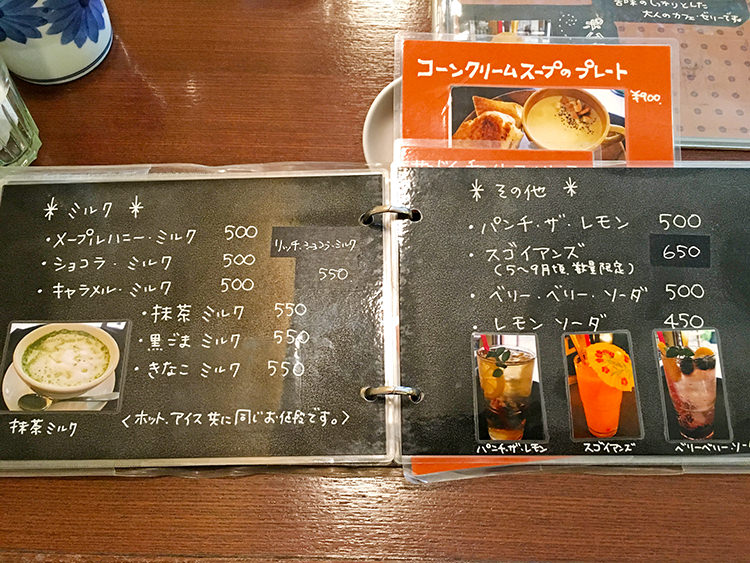 苦味のしっかりとした
大人のカフェ・ゼリーです。
コーンクリームスープのプレート
¥900
＊ ミルク ＊
・メープルハニー・ミルク 500
・ショコラ・ミルク 500
・キャラメル・ミルク 500
リッチ・ショコラ・ミルク
550
・抹茶 ミルク 550
・黒ごま ミルク 550
・きなこ ミルク 550
抹茶 ミルク
〈ホット・アイス 共に同じお値段です。〉
＊ その他 ＊
・パンチ・ザ・レモン 500
・スゴイアンズ 650
(5〜9月頃 数量限定)
・ベリー・ベリー・ソーダ 500
・レモン ソーダ 450
パンチ・ザ・レモン
スゴイアンズ
ベリーベリー・ソーダ